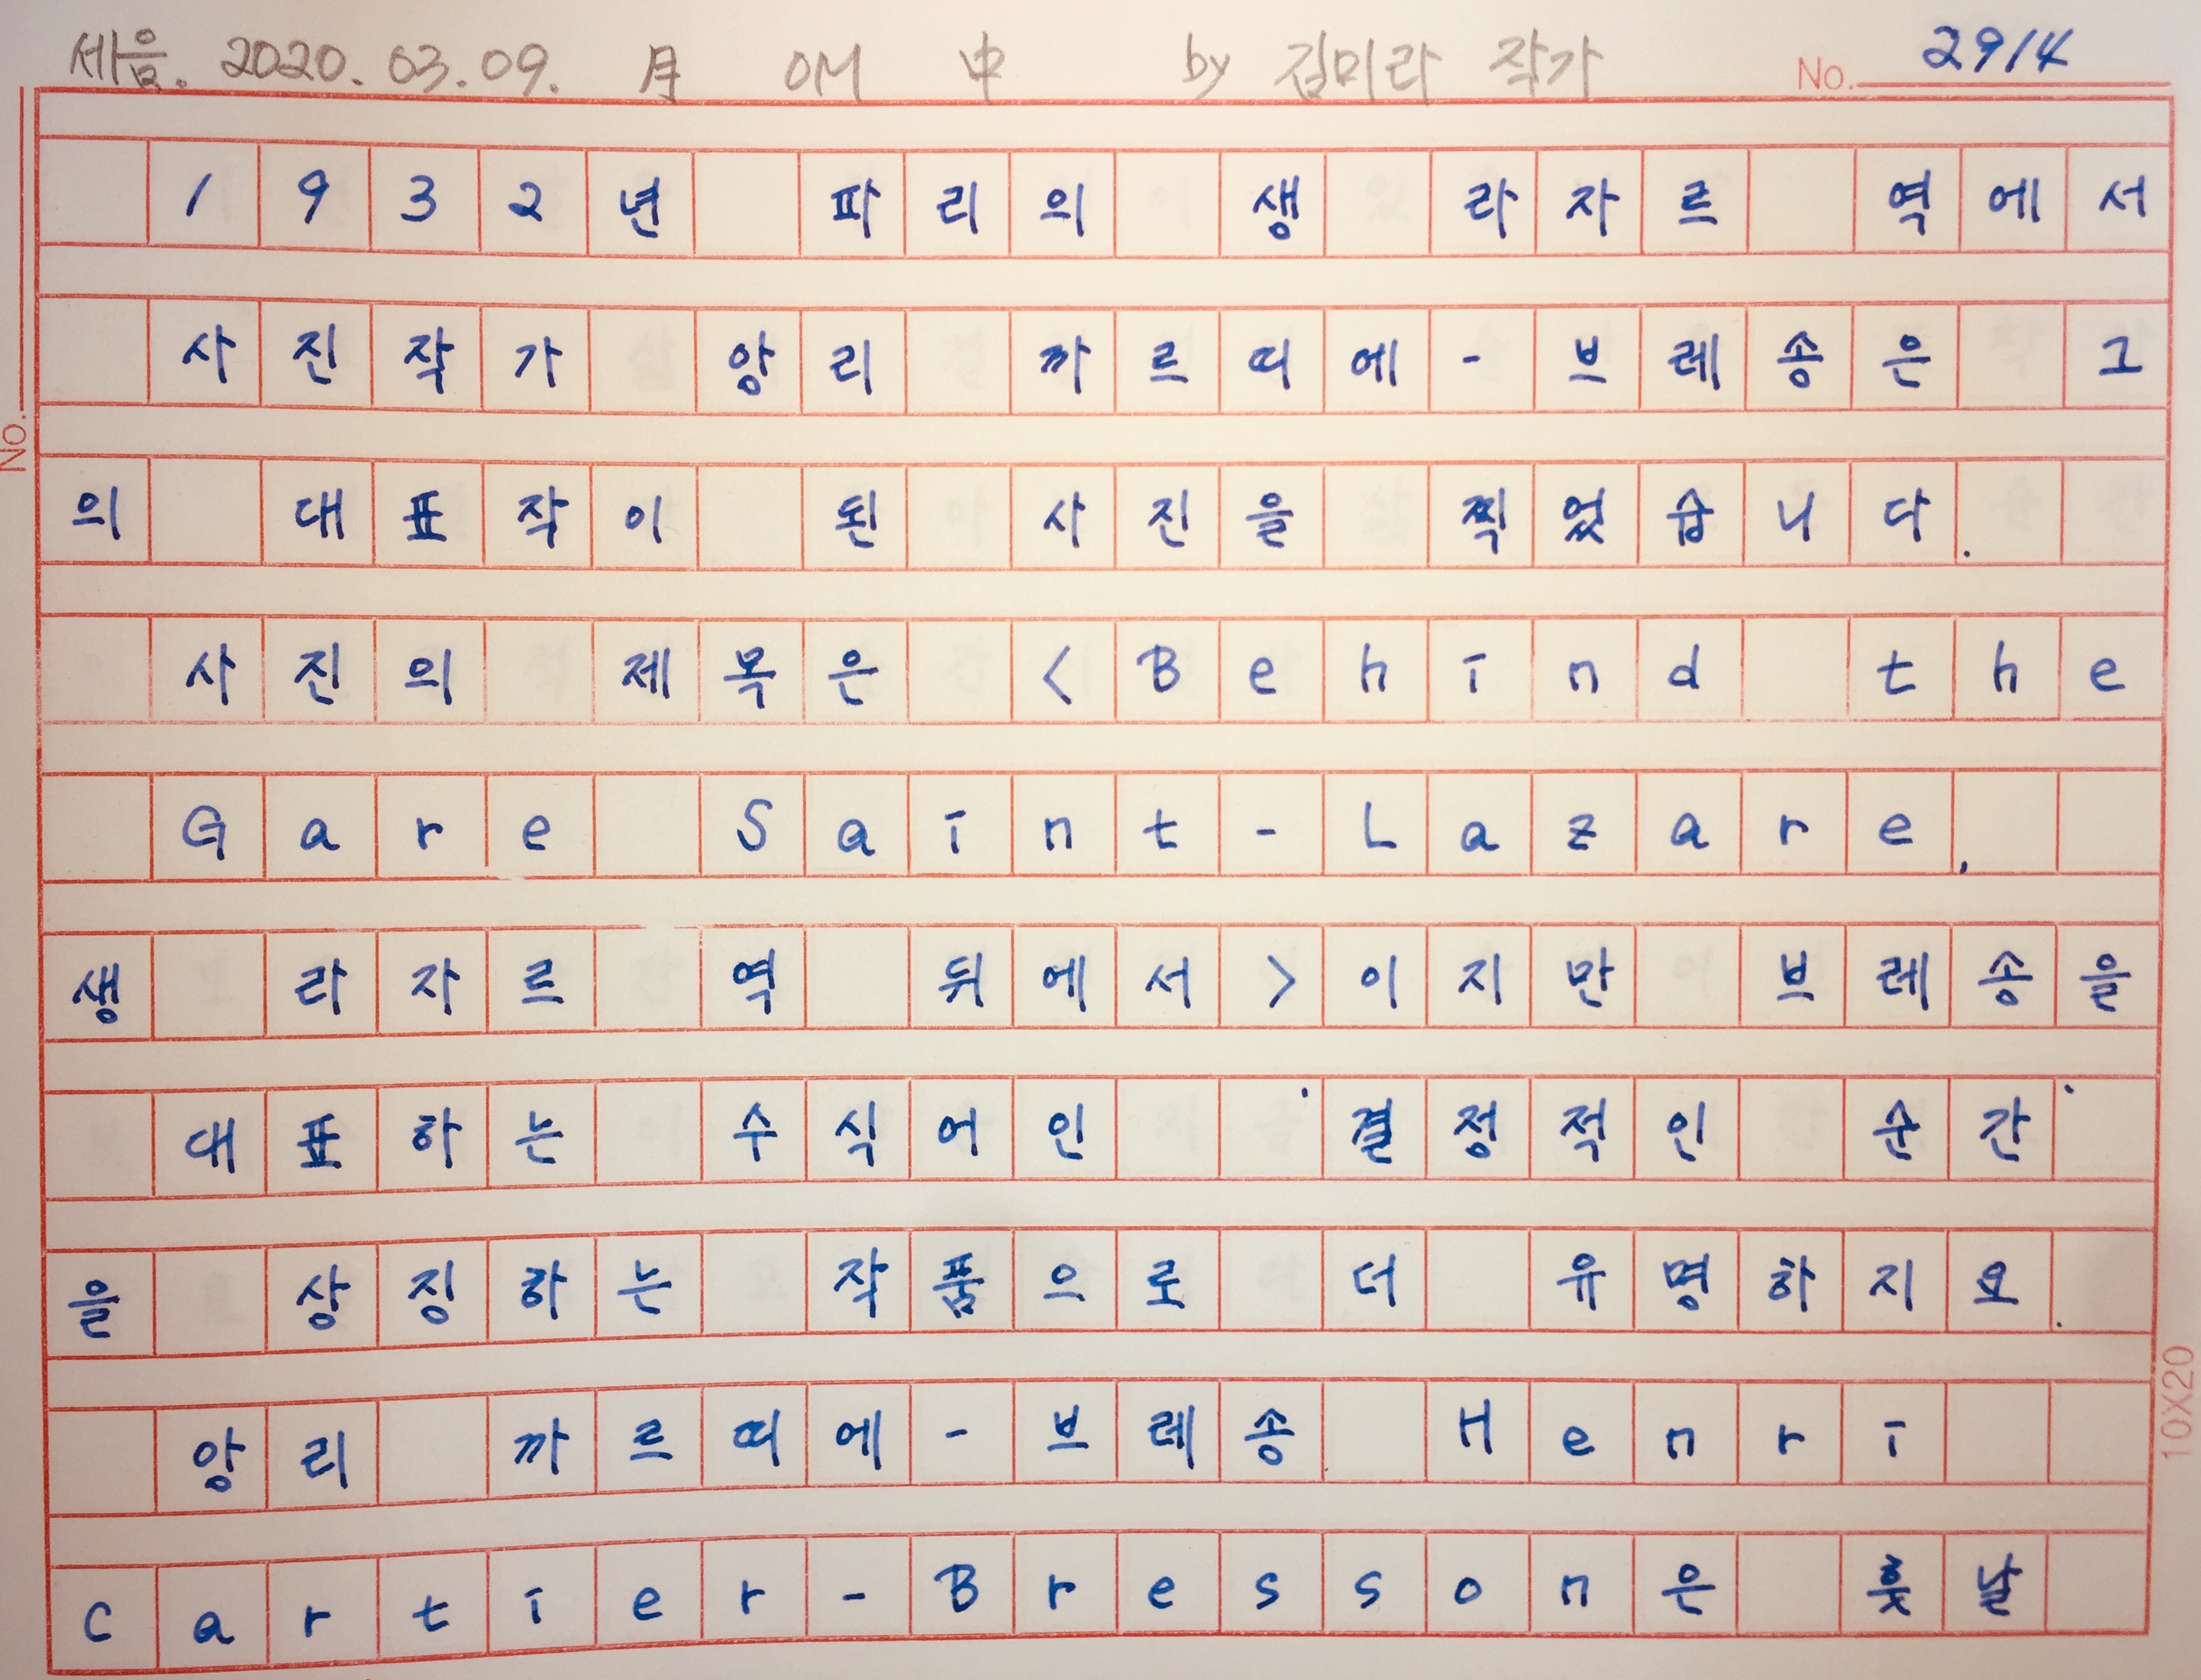 세음. 2020.03.09. 月 OM 中 by 김미라 작가 No. 2914
1932년 파리의 생 라자르 역에서
사진작가 앙리 까르띠에-브레송은 그
의 대표작이 된 사진을 찍었습니다.
No.
사진의 제목은 <Behind the
Gare Saint-Lazare,
생 라자르 역 뒤에서>이지만 브레송을
대표하는 수식어인 '결정적인 순간'
을 상징하는 작품으로 더 유명하지요.
앙리 까르띠에-브레송 Henri
Cartier-Bresson은 훗날
10X20